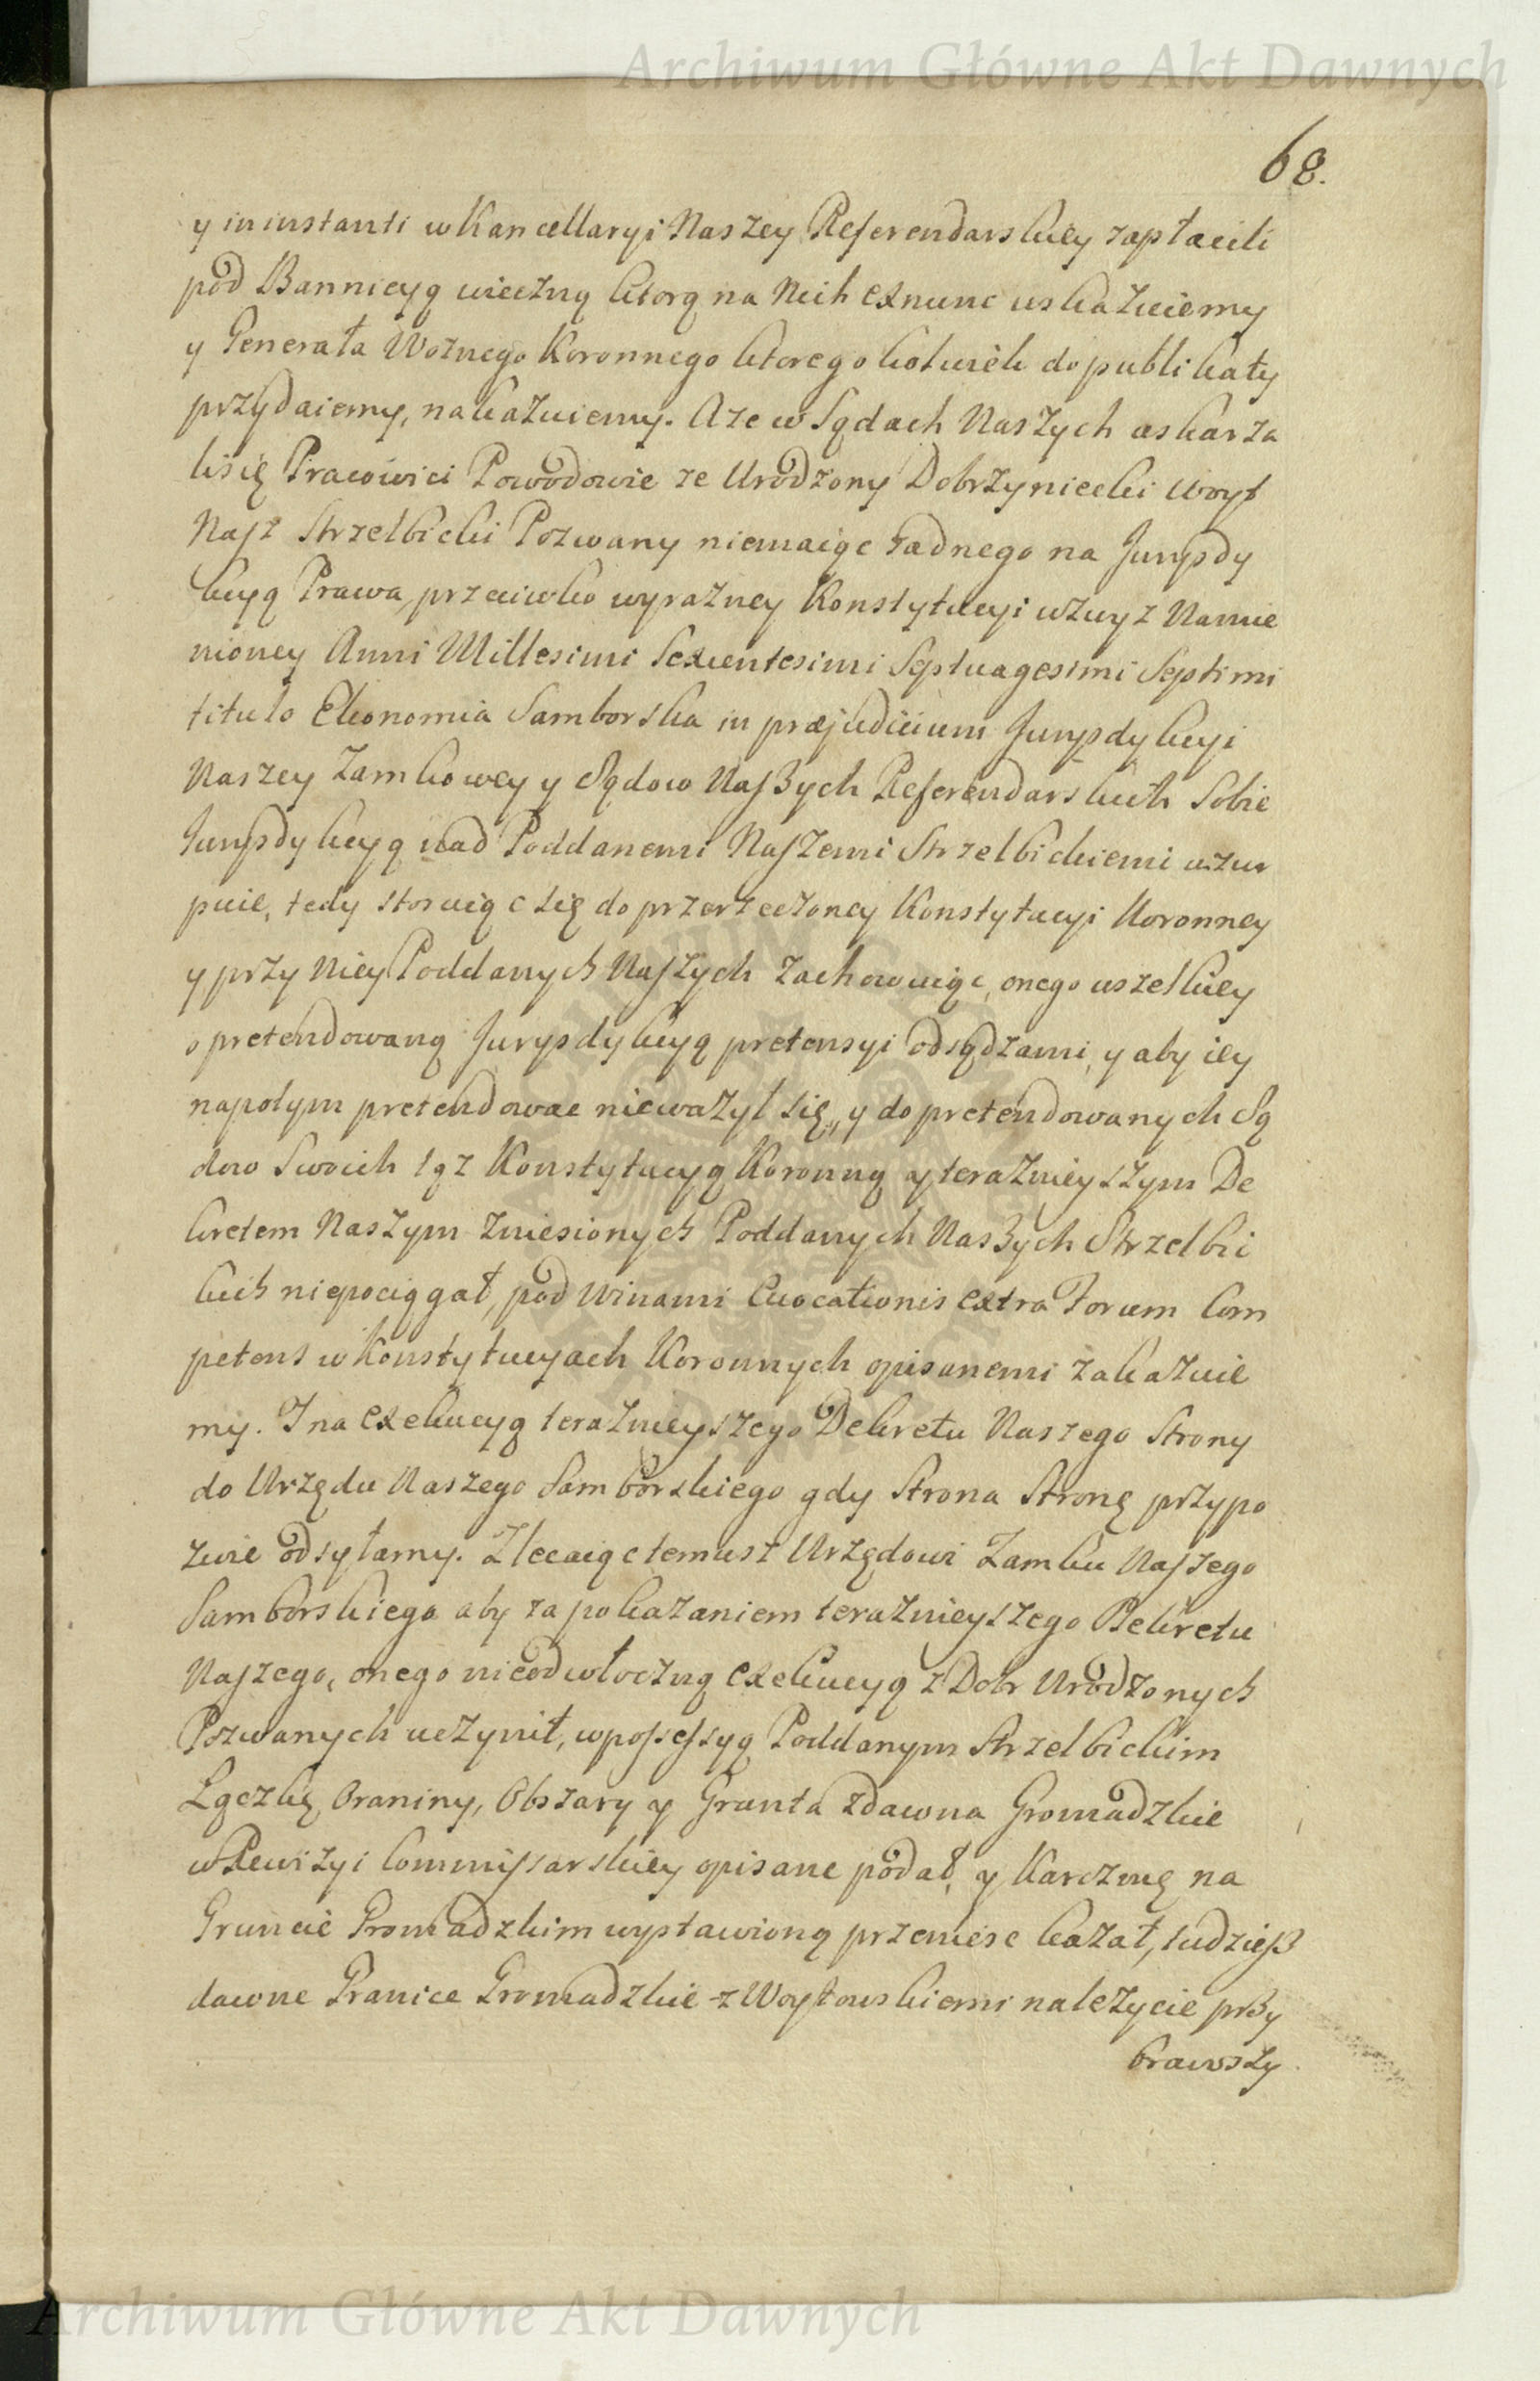 Archiwum Główne Akt Dawnych
68.
y in instanti w Kancellaryi Naszey Referendarskiey zapłacili
pod Bannicyą wieczną ktorą na Nich exnunc uskazuiemy
y Generała Woznego Koronnego ktorego kolwiek do publikaty
przydaiemy, nakazuiemy. A ze w Sądach Naszych uskarza
li się Pracowici Powodowie ze Urodzony Dobrzyniecki Woyt
Nasz Strzelbicki Pozwany niemaiąc żadnego na Jurysdy
kcyą Prawa, przeciwko wyrazney Konstytucyi wzwyz Namie
nioney Anni Millesimi Sexcentesimi Septuagesimi Septimi
titulo Ekonomia Samborska in præjudicium Jurysdykcyi
Naszey Zamkowey y Sądow Naszych Referendarskich Sobie
Jurysdykcyą nad Poddanemi Naszemi Strzelbickiemi uzur
puie, tedy stosuiąc się do przerzeczoney Konstytucyi Koronney
y przy Niey Poddanych Naszych zachowuiąc, onego wszelkiey
o pretendowaną Jurysdykcyą pretensyi odsądzami, y aby iey
napotym pretendowac nieważył się, y do pretendowanych Są
dow Swoich tąz Konstytucyą Koronną y teraznieyszym De
kretem Naszym zniesionych Poddanych Naszych Strzelbi
ckich niepociągał, pod Winami Evocationis extra Forum Com
petens w Konstytucyach Koronnych opisanemi zakazuie
my. I na exekucyą teraznieyszego Dekretu Naszego Strony
do Urzędu Naszego Samborskiego gdy Strona Stronę przypo
zwie odsyłamy. Zlecaiąc temusz Urzędowi Zamku Naszego
Samborskiego aby za pokazaniem teraznieyszego Dekretu
Naszego, onego nieodwłoczną exekucyą z Dobr Urodzonych
Pozwanych uczynił, w possessyą Poddanym Strzelbickim
Łączkę, Oraniny, Obszary y Grunta zdawna Gromadzkie
w Rewizyi Commissarskiey opisane podał, y Karczmę na
Gruncie Gromadzkim wystawioną przeniesc kazał, tudziesz
dawne Granice Gromadzkie z Woytowskiemi nalezycie przy
brawszy
Archiwum Główne Akt Dawnych